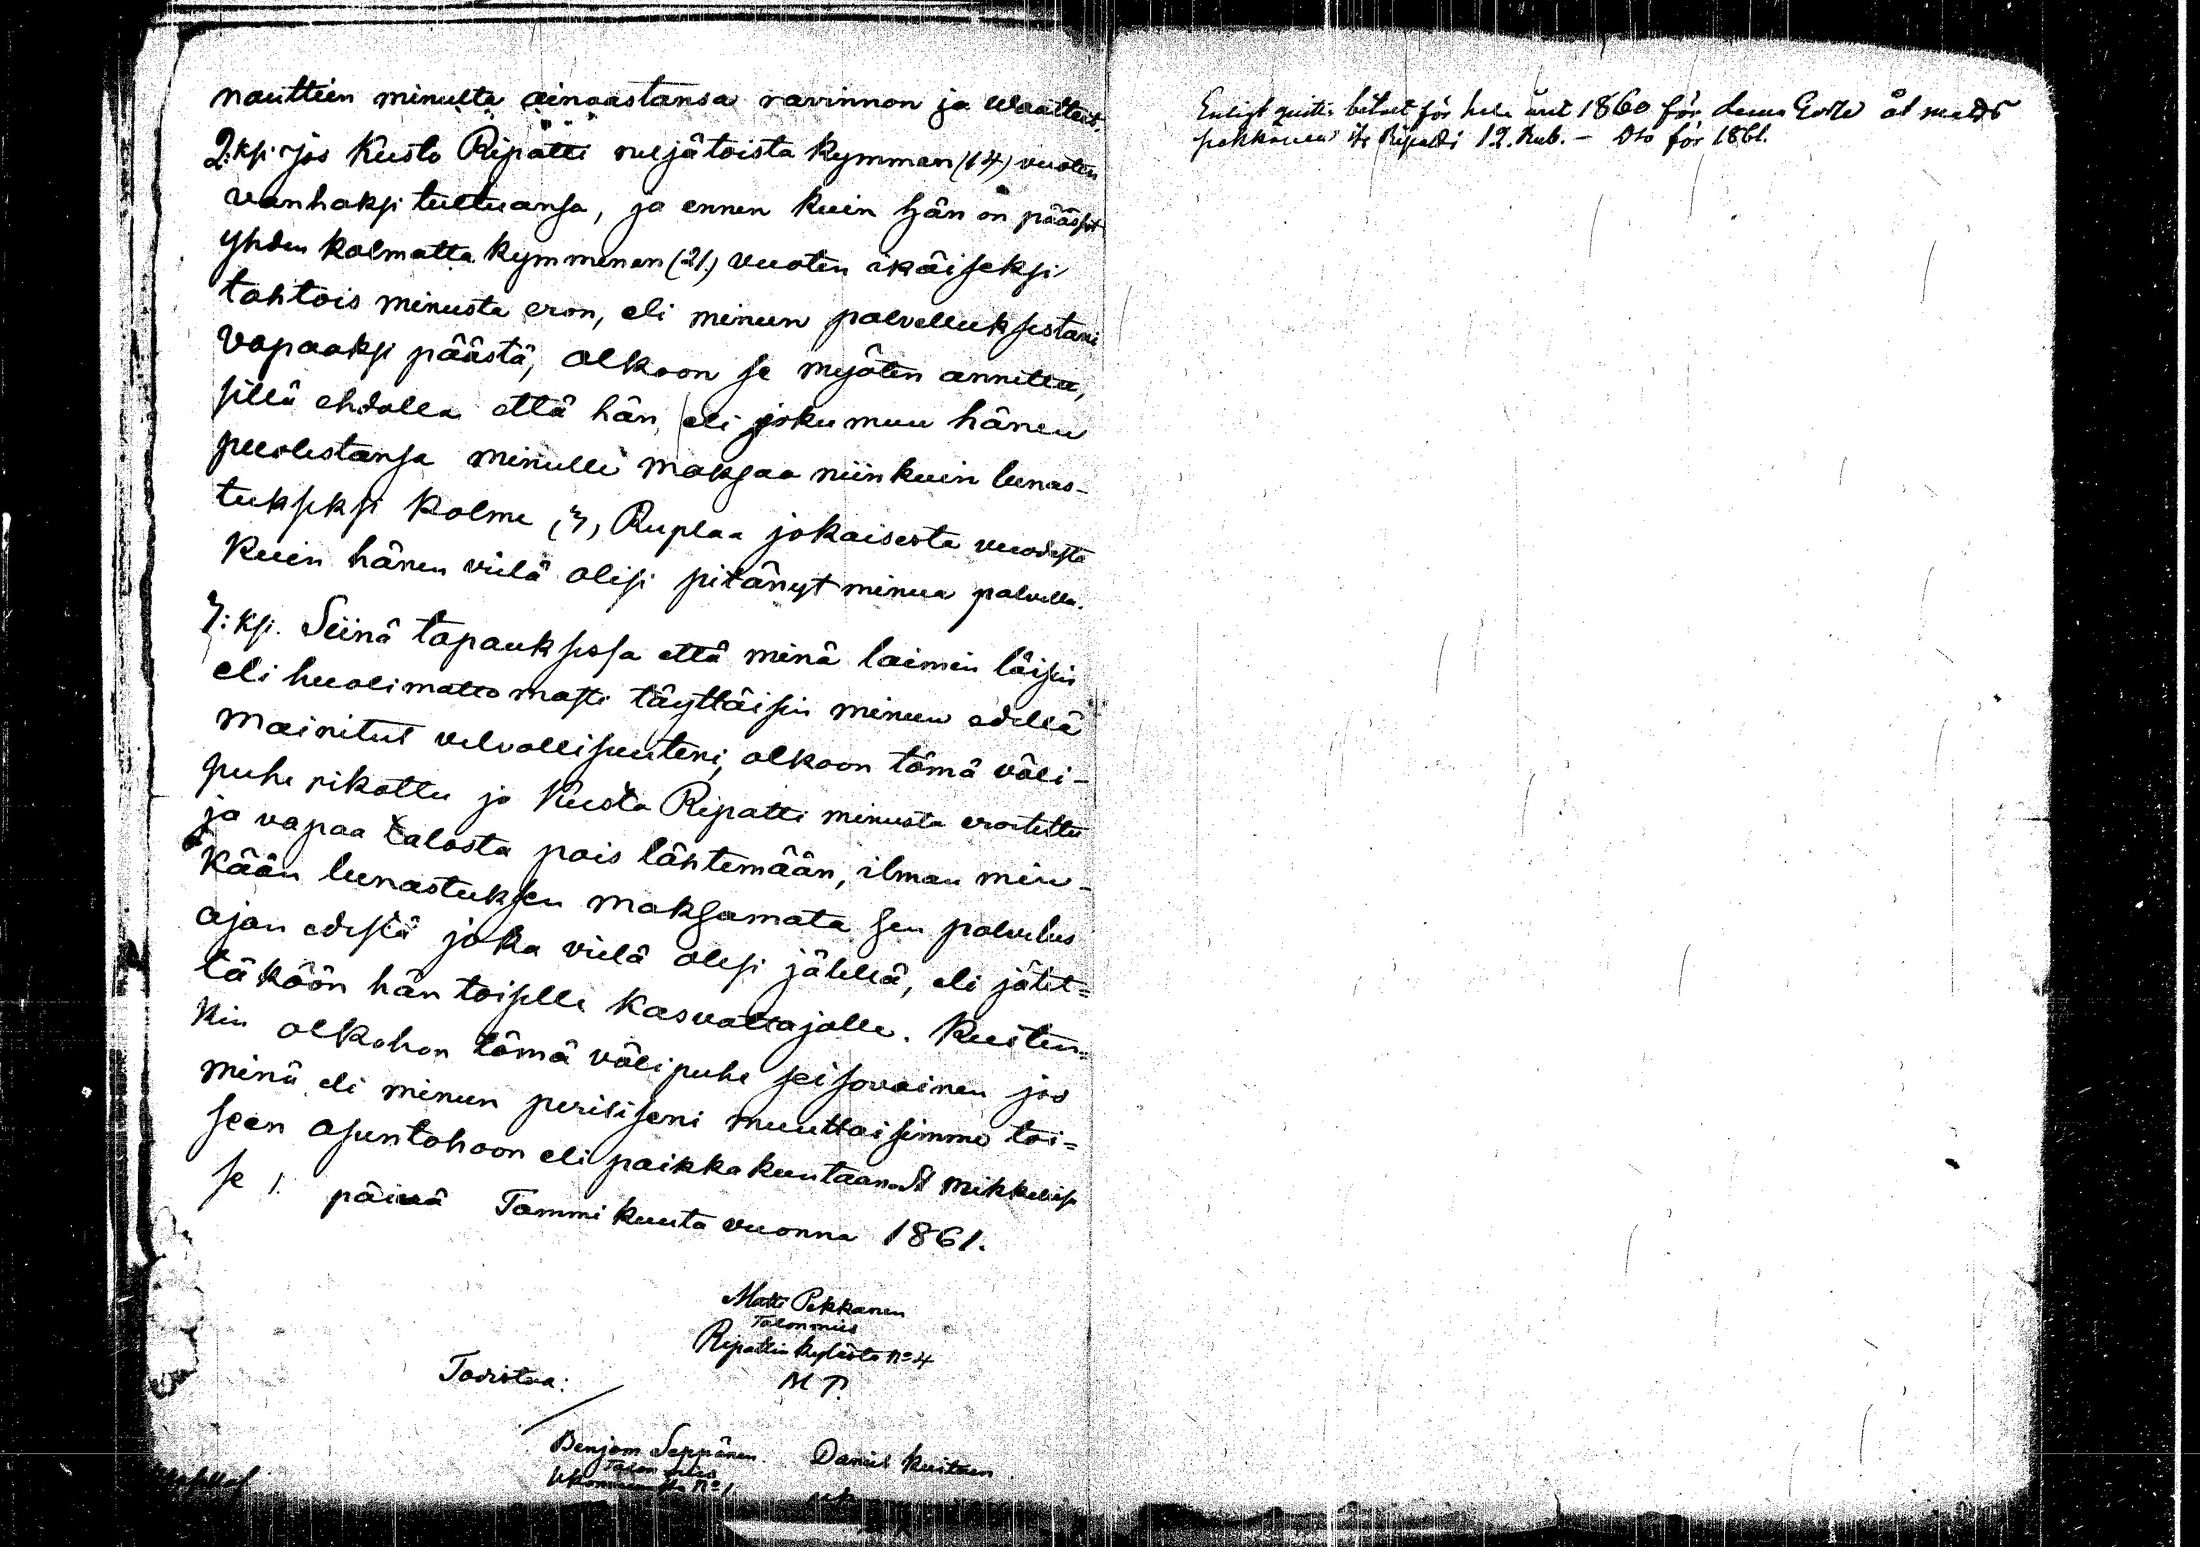 nauttien minulta ainoastansa ravinnon ja waattet.
2:ksi Jos Kusto Ripatti neljätoista kymmen (14) vuoten
vanhaksi tultuansa, ja ennen kuin hän on päässyt
yhden kolmatta kymmenen (21.) vuoten ikäiseksi
tahtois minusta eron, eli minun palvelluksestani
vapaaksi päästä, olkoon se myöten annettu,
sillä ehdolla että hän, eli joku muu hänen
puolestansa minulle maksaa niinkuin lunas-
tukseksi Kolme (3) Ruplaa jokaisesta vuodesta
kuin hänen vielä olisi pitänyt minua palvella.
3:ksi. Siinä tapauksessa että minä laimin löisin
eli huolimattomasti täyttäisin minun edellä
mainitut velvollisuuteni, olkoon tämä väli-
puhe rikottu ja Kusta Ripatti minusta eroitettu
ja vapaa talosta pois lähtemään, ilman min-
kään lunastuksen maksamata sen palvelus
ajan edestä joka vielä olisi jälellä, eli jätet=
täköön hän toiselle kasvattajalle. Kuiten=
kin olkohon tämä välipuhe seisovainen jos
minä eli minun perilliseni muuttaisimme toi=
seen asuntohoon eli paikkakuntaan. St Mikkelissä
se 1. päivä Tammikuuta vuonna 1861.
Matti Pekkanen
Talonmies
Ripatin kylästä No 4
M P.
Todistaa:
Benjam Seppänen Daniel Kuitunen
Talon mies
No 1
Enligt quitto betalt för hela året 1860 för denna Gosse åt Matts
Pekkanen ifr Ripatti 12. Rub. – Dto för 1861.